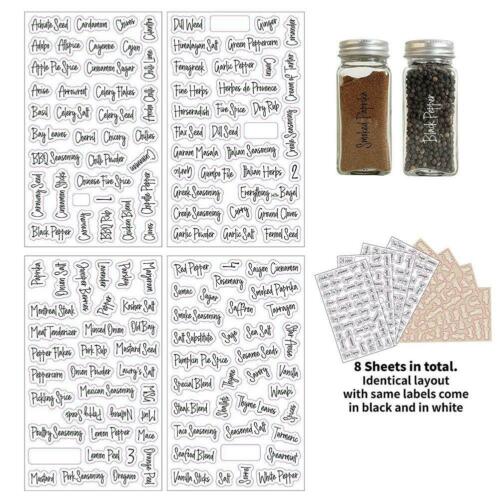 Achiote Seed Cardamom Chives Cilantro
Adobo Allspice Cayenne Cajun
Apple Pie Spice Cinnamon Sugar Chili Lime
Anise Arrowroot Celery Flakes
Basil Celery Salt Celery Seed Anise Chili
Bay Leaves Chervil Chicory Chilies
BBQ Seasoning Chili Powder Cinnamon
Caraway Seed Cinnamon Sticks Chinese Five Spice Chipotle Pepper
Caraway BBQ Rub 1 Chicken Blend Cloves
Black Pepper
Dill Weed Ginger Coriander
Himalayan Salt Green Peppercorn
Fenugreek Garlic Pepper Cream of Tartar
Fine Herbs Herbes de Provence
Horseradish Five Spice Dry Rub
Flax Seed Dill Seed Creole Seasoning
Garam Masala Italian Seasoning
Garlic Gumbo File Italian Herbs 2
Greek Seasoning Everything Bagel
Creole Seasoning Curry Ground Cloves
Garlic Powder Garlic Salt Fennel Seed
Smoked Paprika
Black Pepper
Paprika Onion Salt Nutmeg Marjoram
Montreal Steak Kosher Salt
Meat Tenderizer Minced Onion Old Bay
Pepper Flakes Pork Rub Mustard Seed
Peppercorn Onion Powder Lawry's Salt
Pickling Spice Mexican Seasoning MSG
Parsley Poppy Seed Nutmeg Mint
Poultry Seasoning Lemon Pepper Mace
Lemon Peel 3 Orange Peel
Mustard Pork Seasoning Oregano
Red Pepper 4 Saigon Cinnamon
Sumac Rosemary Smoked Paprika
Sugar
Smoke Seasoning Saffron Tarragon
Salt Substitute Sage Sea Salt
Pumpkin Pie Spice Sesame Seeds
Special Blend Thyme Savory Vanilla
Wasabi
Steak Blend Thyme Leaves
Taco Seasoning Seasoned Salt Turmeric
Seafood Blend Spearmint
Vanilla Sticks Salt Sorrel White Pepper
8 Sheets in total.
Identical layout
with same labels come
in black and in white